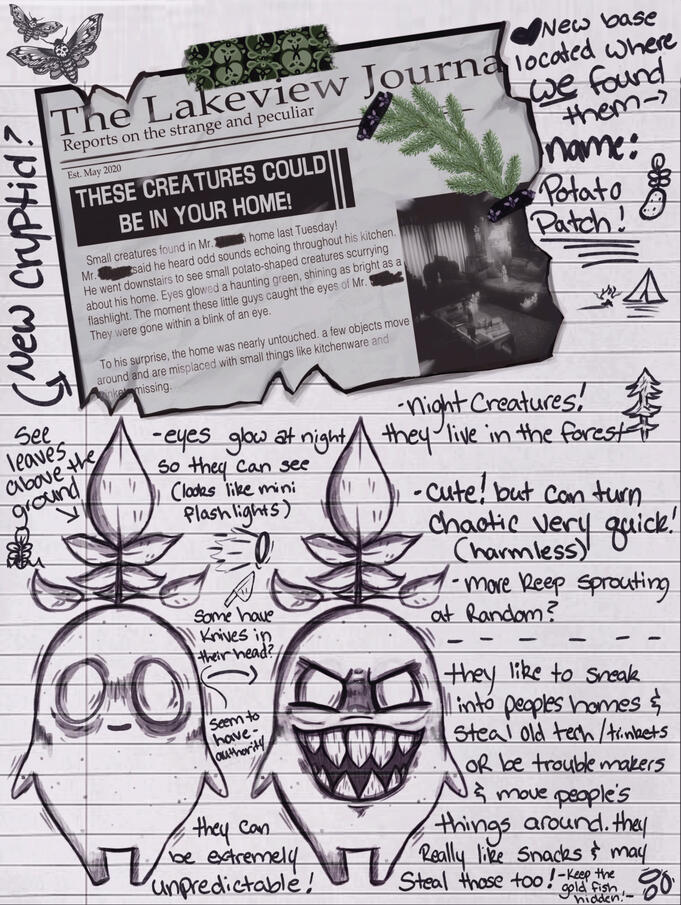 The Lakeview Journa
Reports on the strange and peculiar
Est. May 2020
THESE CREATURES COULD
BE IN YOUR HOME!
Small creatures found in Mr. home last Tuesday!
Mr. said he heard odd sounds echoing throughout his kitchen.
He went downstairs to see small potato-shaped creatures scurrying
about his home. Eyes glowed a haunting green, shining as bright as a
flashlight. The moment these little guys caught the eyes of Mr.
They were gone within a blink of an eye.
To his surprise, the home was nearly untouched. a few objects move
around and are misplaced with small things like kitchenware and
missing.
New Cryptid?
New base
located where
we found
them→
name:
Potato
Patch!
See
leaves
above the
ground
-eyes glow at night
so they can see
(looks like mini
flashlights)
-night Creatures!
they live in the forest
-cute! but can turn
chaotic very quick!
(harmless)
-more keep sprouting
at Random?
Some have
Knives in
their head?
seem to
have-
authority
they like to sneak
into peoples homes &
steal old tech/trinkets
OR be trouble makers
& move people's
things around. they
Really like snacks & may
Steal those too!
-Keep the
gold fish
hidden!-
they can
be extremely
unpredictable!